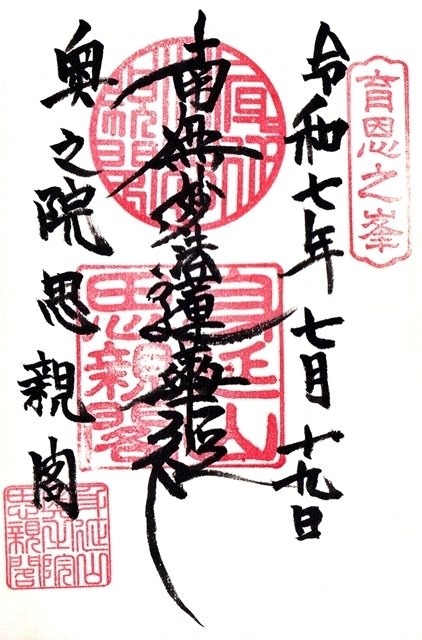 育恩之峯
令和七年 七月 十九日
南無妙法蓮華経
奥之院思親閣
身延山
思親閣
身延山
奥之院
思親閣